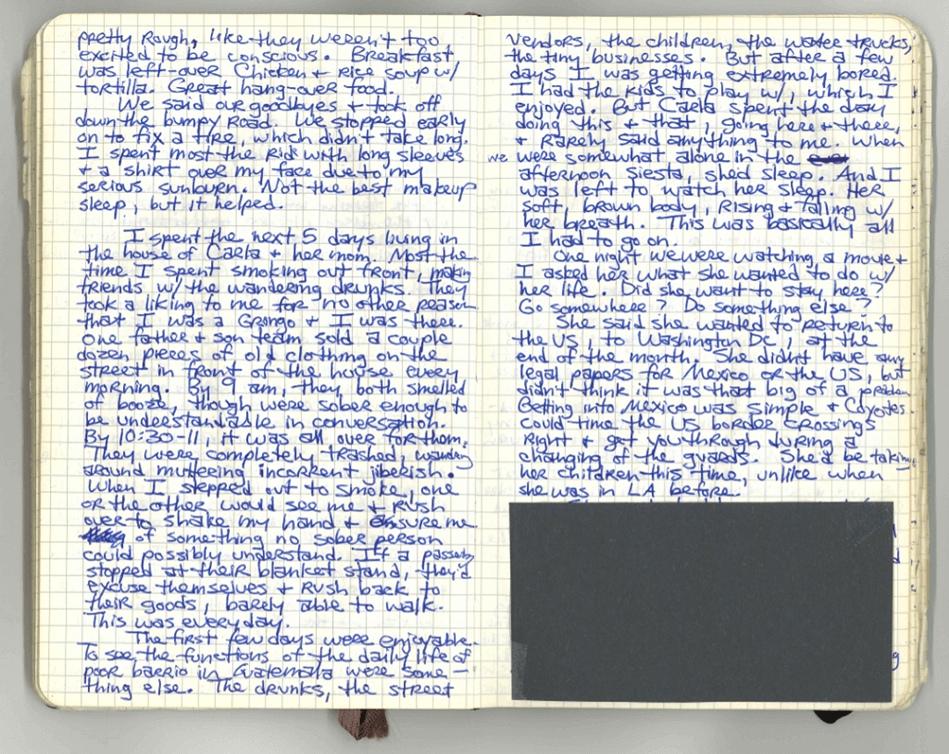 pretty Rough, like they weren't too
excited to be conscious. Breakfast
was left-over Chicken + rice soup w/
tortilla. Great hang-over food.
We said our goodbyes + took off
down the bumpy Road. We stopped early
on to fix a tire, which didn't take long.
I spent most the Rid with long sleeves
+ a shirt over my face due to my
serious sunburn. Not the best makeup
sleep, but it helped.
I spent the next 5 days living in
the house of Carla + her mom. Most the
time I spent smoking out front, making
friends w/ the wandering drunks. They
took a liking to me for no other reason
that I was a Gringo + I was there.
One father + son team sold a couple
dozen pieces of old clothing on the
street in front of the house every
morning. By 9 am, they both smelled
of booze, though were sober enough to
be understandable in conversation.
By 10:30-11, it was all over for them.
They were completely trashed, wandering
around muttering incorrent jiberish.
When I stepped out to smoke, one
or the other would see me + Rush
over to shake my hand + ensure me
of something no sober person
could possibly understand. If a passerby
stopped at their blanket stand, they'd
excuse themselves + Rush back to
their goods, barely able to walk.
This was everyday.
The first few days were enjoyable.
To see the functions of the daily life of
poor barrio in Guatemala were some-
thing else. The drunks, the street
vendors, the children, the water trucks,
the tiny businesses. But after a few
days I was getting extremely bored.
I had the kids to play w/, which I
enjoyed. But Carla spent the day
doing this + that, going here + there,
+ Rarely said anything to me. When
we were somewhat alone in the
afternoon siesta, she'd sleep. And I
was left to watch her sleep. Her
soft, brown body, Rising + falling w/
her breath. This was basically all
I had to go on.
One night we were watching a movie +
I asked her what she wanted to do w/
her life. Did she want to stay here?
Go somewhere? Do something else?
She said she wanted to return to
the US, to Washington DC, at the
end of the month. She didn't have any
legal papers for Mexico or the US, but
didn't think it was that big of a problem.
Getting into Mexico was simple + Coyotes
could time the US border crossings
Right + get you through during a
changing of the guards. She'd be taking
her children this time, unlike when
she was in LA before.